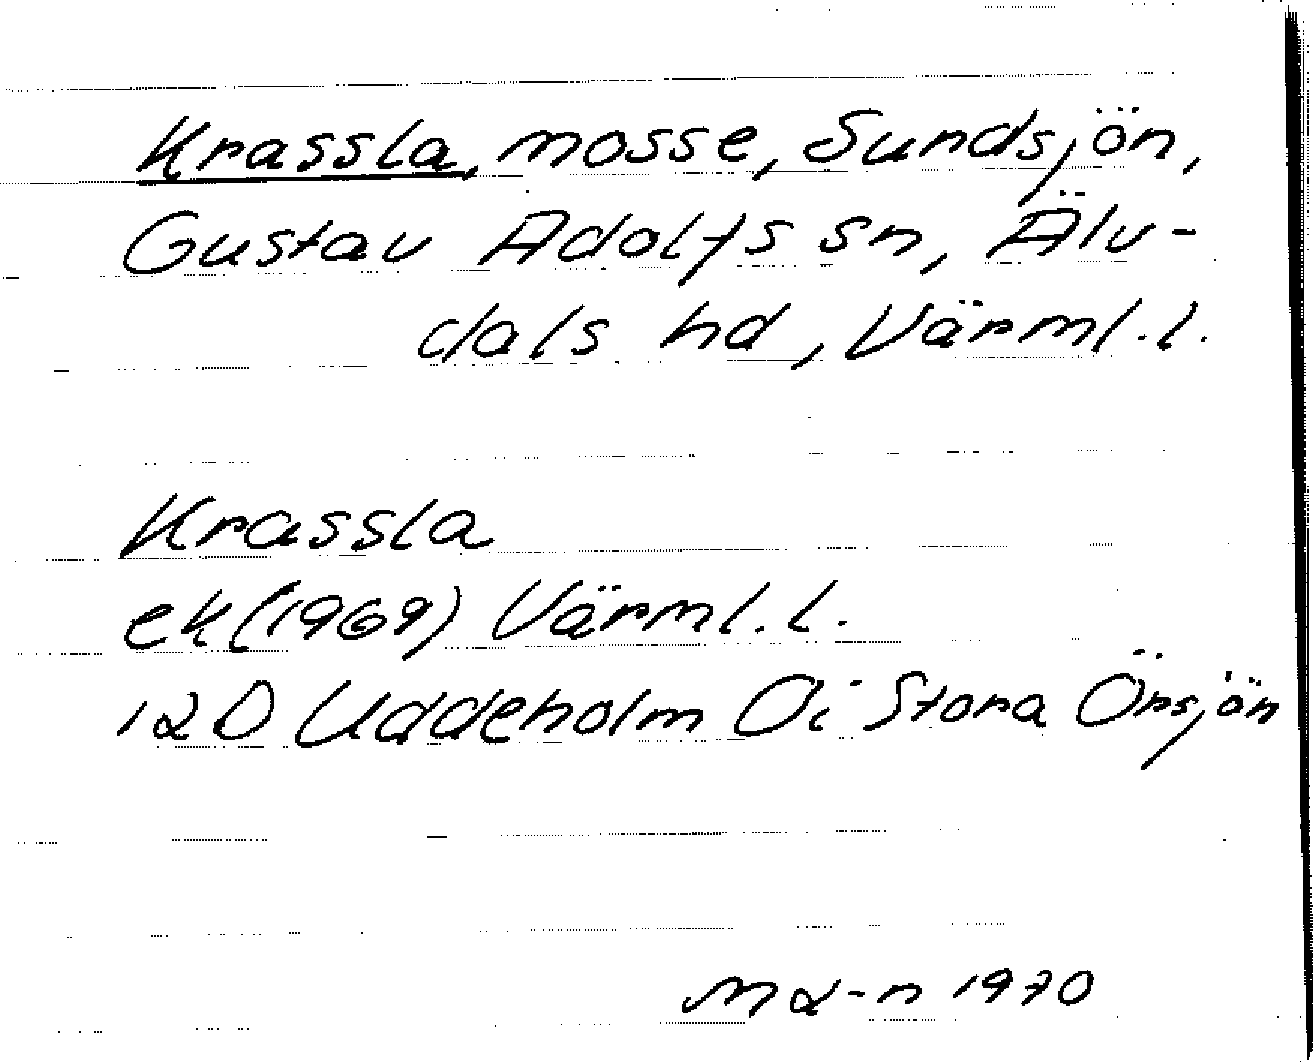 Krassla, mosse, Sundsjön,
Gustav Adolfs sn, Älv-
dals hd, Värml. l.
Krassla
ek (1969) Värml. l.
12D Uddeholm Öi Stora Örsjön
1970